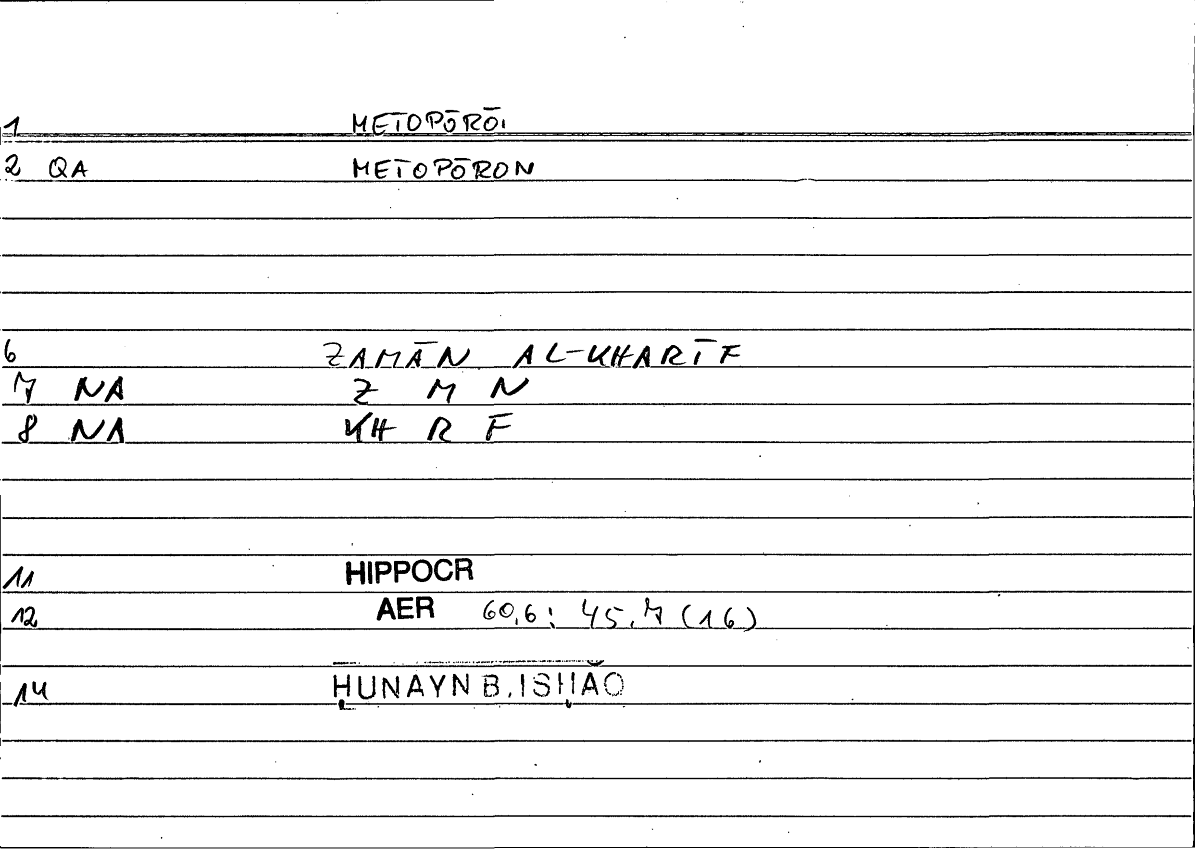 1 METOPŌRŌI
2 QA METOPŌRON
6 ZAMĀN AL-KHARĪF
7 NA Z M N
8 NA KH R F
11 HIPPOCR
12 AER 60,6: 45,7 (16)
14 ḤUNAYN B. ISḤĀQ